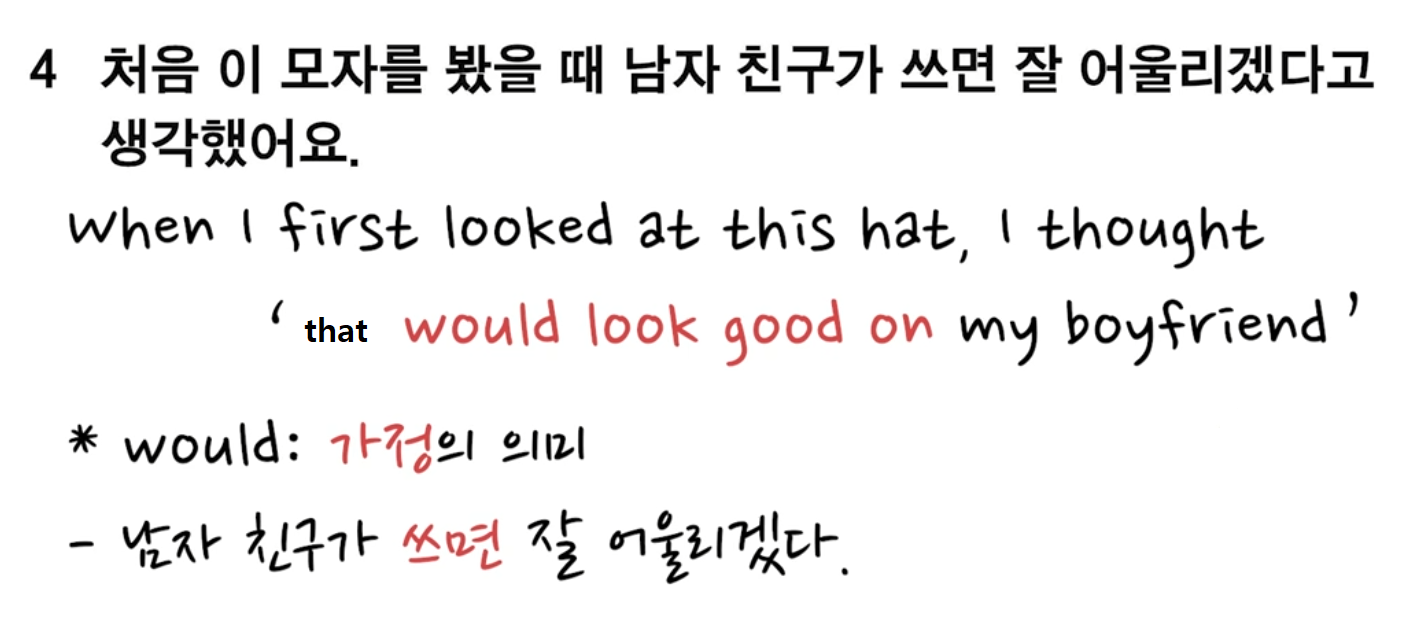 4 처음 이 모자를 봤을 때 남자 친구가 쓰면 잘 어울리겠다고
생각했어요.
When I first looked at this hat, I thought
‘ that would look good on my boyfriend ’
* would: 가정의 의미
- 남자 친구가 쓰면 잘 어울리겠다.